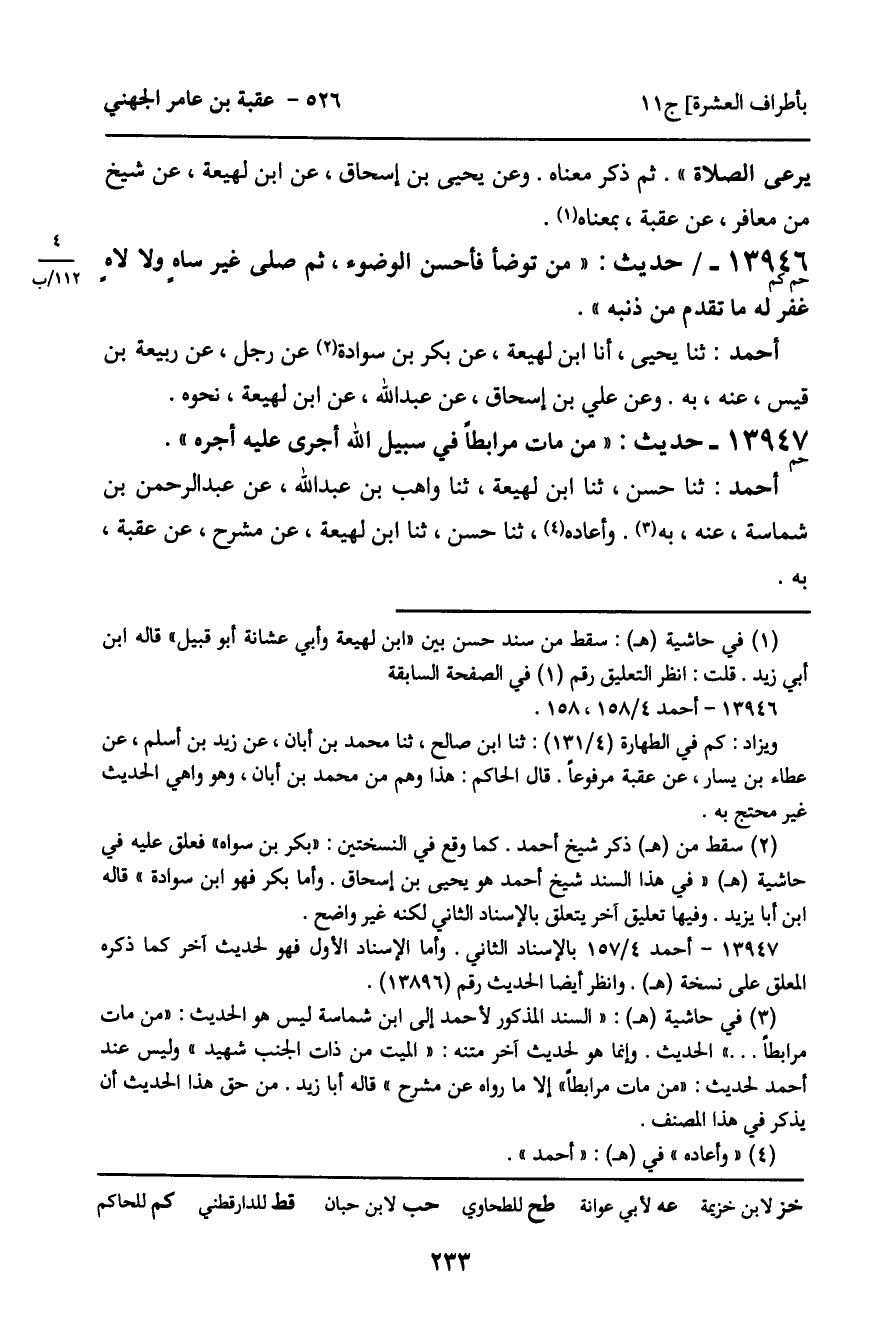 بأطراف العشرة] ج١١ ٥٢٦ - عقبة بن عامر الجهني
يرعى الصلاة » . ثم ذكر معناه . وعن يحيى بن إسحاق ، عن ابن لهيعة ، عن شيخ
من معافر ، عن عقبة ، بمعناه(١) .
١٣٩٤٦ ـ / حديث : « من توضأ فأحسن الوضوء ، ثم صلى غير ساهٍ ولا لاهٍ
حم كم
٤
١١٢/ب
غفر له ما تقدم من ذنبه » .
أحمد : ثنا يحيى ، أنا ابن لهيعة ، عن بكر بن سوادة(٢) عن رجل ، عن ربيعة بن
قيس ، عنه ، به . وعن علي بن إسحاق ، عن عبدالله ، عن ابن لهيعة ، نحوه .
١٣٩٤٧ ـ حديث : « من مات مرابطاً في سبيل الله أجرى عليه أجره » .
حم
أحمد : ثنا حسن ، ثنا ابن لهيعة ، ثنا واهب بن عبدالله ، عن عبدالرحمن بن
شماسة ، عنه ، به(٣) . وأعاده(٤) ، ثنا حسن ، ثنا ابن لهيعة ، عن مشرح ، عن عقبة ،
به .
(١) في حاشية (هـ) : سقط من سند حسن بين «ابن لهيعة وأبي عشانة أبو قبيل» قاله ابن
أبي زيد . قلت : انظر التعليق رقم (١) في الصفحة السابقة
١٣٩٤٦ - أحمد ١٥٨/٤ ، ١٥٨ .
ويزاد : كم في الطهارة (١٣١/٤) : ثنا ابن صالح ، ثنا محمد بن أبان ، عن زيد بن أسلم ، عن
عطاء بن يسار ، عن عقبة مرفوعاً . قال الحاكم : هذا وهم من محمد بن أبان ، وهو واهي الحديث
غير محتج به .
(٢) سقط من (هـ) ذكر شيخ أحمد . كما وقع في النسختين : «بكر بن سواه» فعلق عليه في
حاشية (هـ) « في هذا السند شيخ أحمد هو يحيى بن إسحاق . وأما بكر فهو ابن سوادة » قاله
ابن أبا يزيد . وفيها تعليق آخر يتعلق بالإسناد الثاني لكنه غير واضح .
١٣٩٤٧ - أحمد ١٥٧/٤ بالإسناد الثاني . وأما الإسناد الأول فهو لحديث آخر كما ذكره
المعلق على نسخة (هـ) . وانظر أيضا الحديث رقم (١٣٨٩٦) .
(٣) في حاشية (هـ) : « السند المذكور لأحمد إلى ابن شماسة ليس هو الحديث : «من مات
مرابطاً . . .» الحديث . وإنما هو لحديث آخر متنه : « الميت من ذات الجنب شهيد » وليس عند
أحمد لحديث : «من مات مرابطاً» إلا ما رواه عن مشرح » قاله أبا زيد . من حق هذا الحديث أن
يذكر في هذا المصنف .
(٤) « وأعاده » في (هـ) : « أحمد » .
خز لابن خزيمة عه لأبي عوانة طح للطحاوي حب لابن حبان قط للدارقطني كم للحاكم
٢٣٣